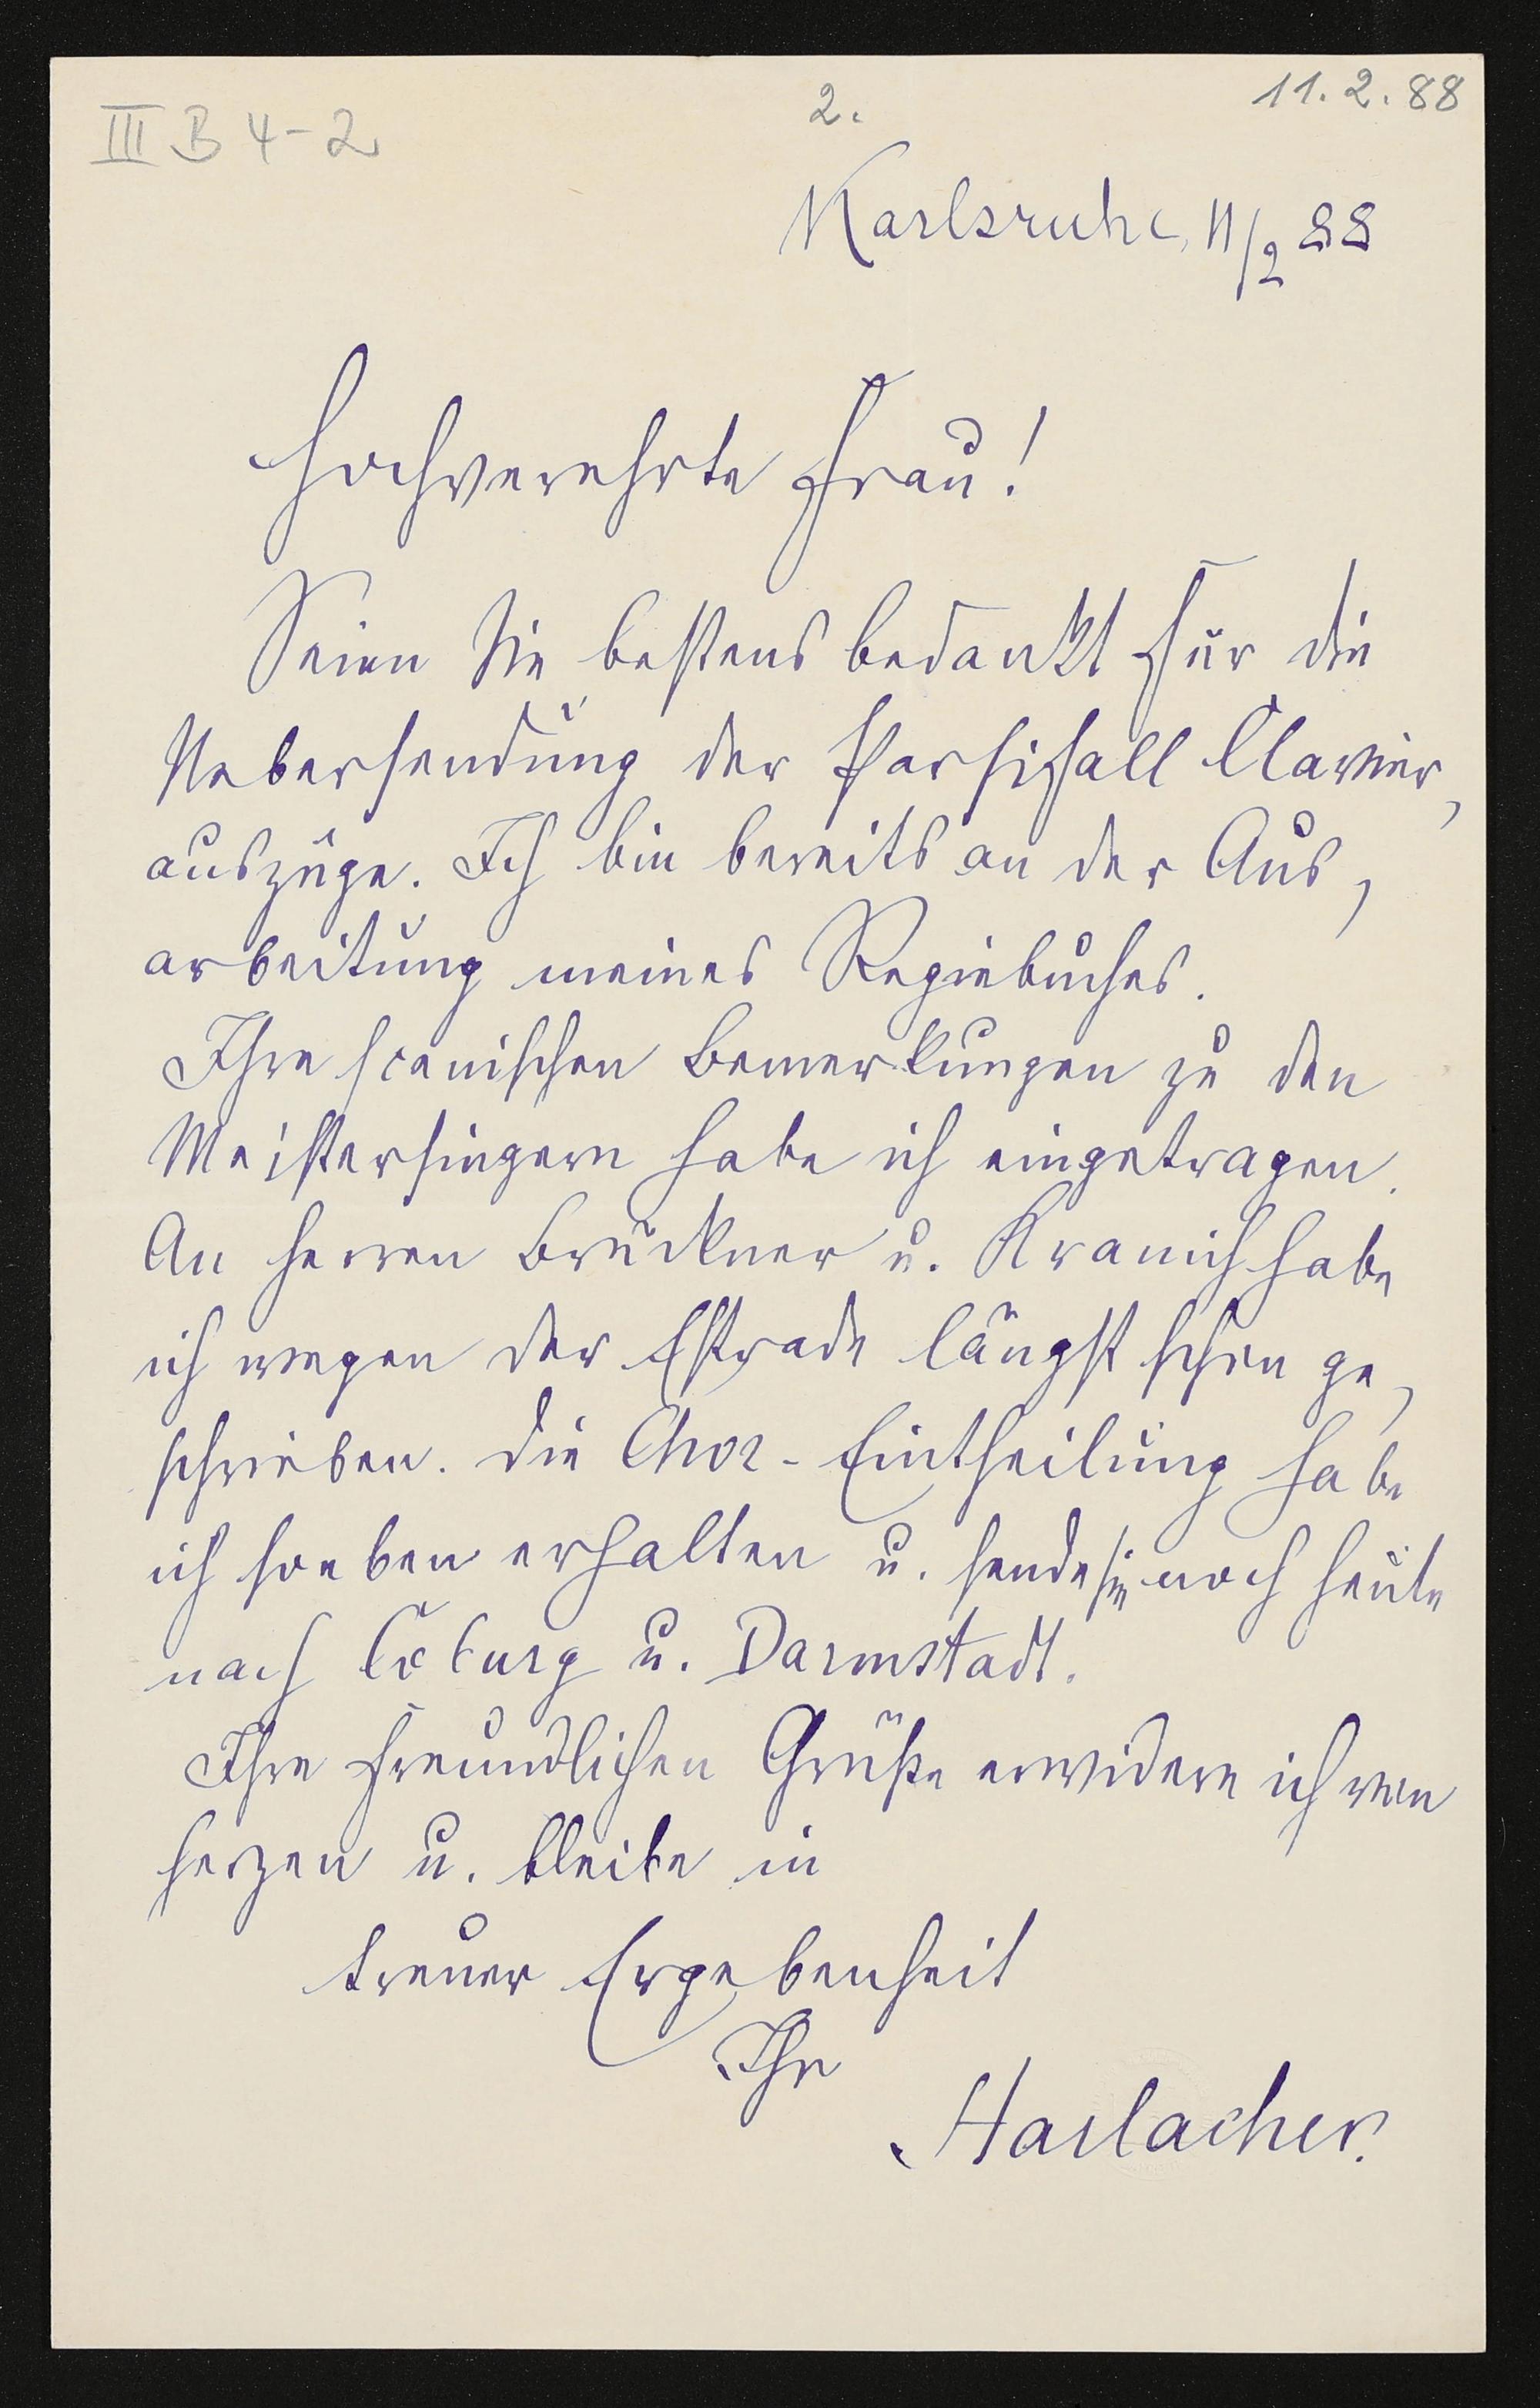 III B 4-2
2.
11. 2. 88
Karlsruhe, 11/2 88
Hochverehrte Frau!
Seien Sie bestens bedankt für die
Uebersendung der Parsifall Clavier,
auszüge. Ich bin bereits an der Aus,
arbeitung meines Regiebuches.
Ihre scenischen Bemerkungen zu den
Meistersingern habe ich eingetragen.
An Herren Brückner u. Kranich habe
ich wegen der Estrade längst schon ge,
schrieben. Die Chor-Eintheilung habe
ich soeben erhalten u. sende sie noch heute
nach Coburg u. Darmstadt.
Ihre freundlichen Grüße erwidere ich von
Herzen u. bleibe in
treuer Ergebenheit
Ihr
Harlacher.